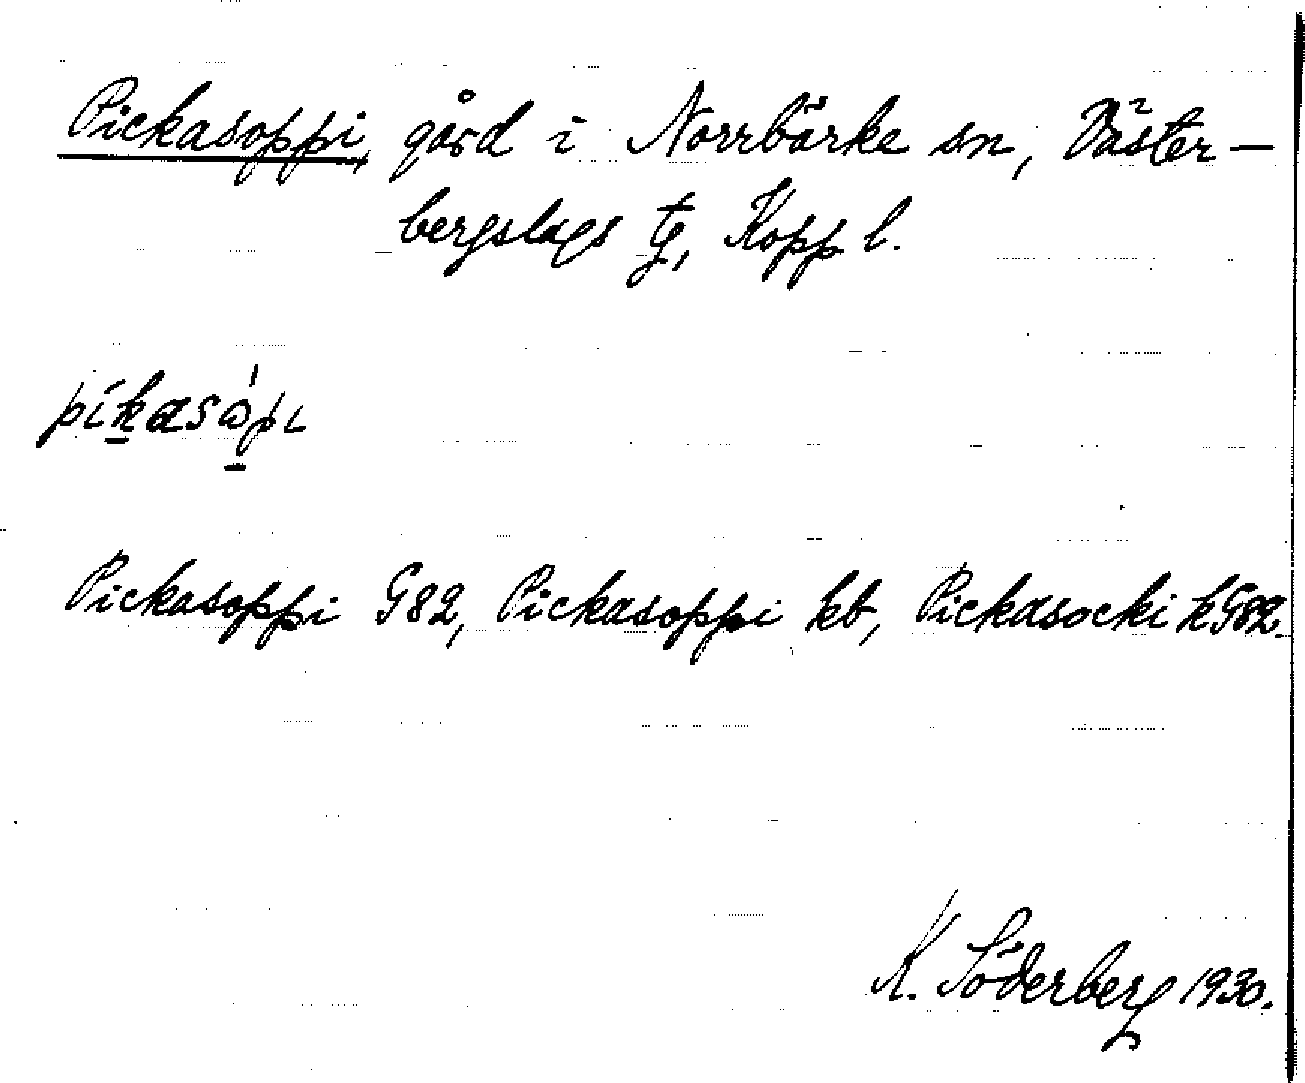 Pickasoppi, gård i Norrbärke sn, Väster-
bergslags tg, Kopp l.
pikasåpi
Pickasoppi G82, Pickasoppi kb, Pickasocki kG82.
K. Söderberg 1930.